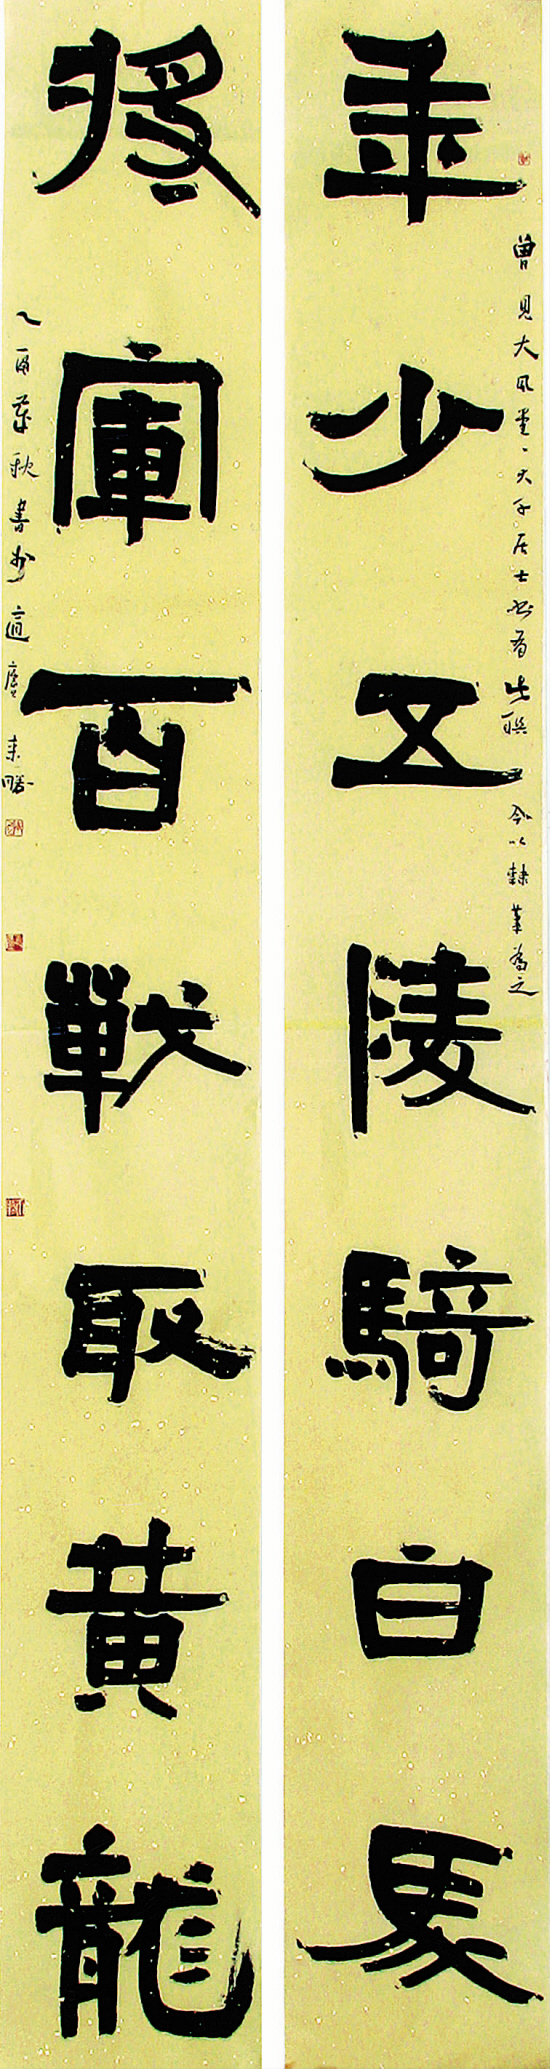 年少五陵騎白馬
曾見大風堂大千居士書有此聯 今以隸筆為之
將軍百戰取黃龍
乙酉 秋書於適廔 來勝